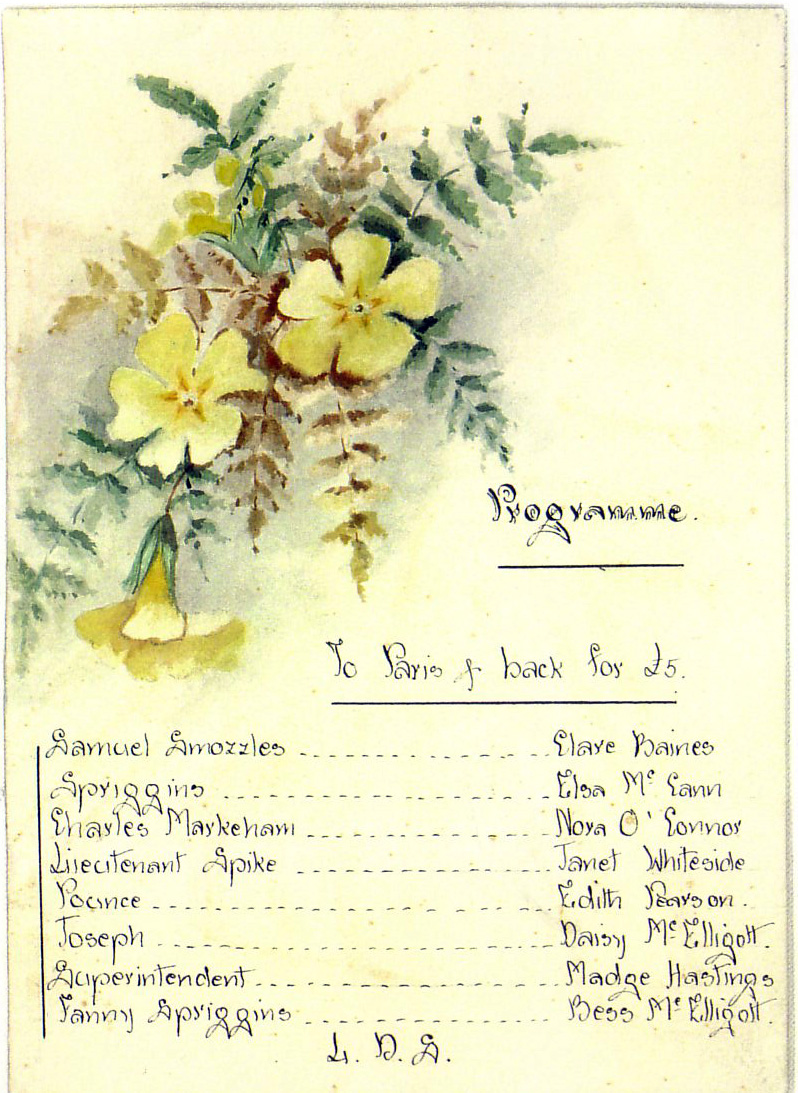 Programme.
To Paris & back for £5.
Samuel Smozzles ................ Clare Baines
Spriggins ................ Elsa McCann
Charles Markeham ................ Nora O'Connor
Lieutenant Spike ................ Janet Whiteside
Pounce ................ Edith Pearson.
Joseph ................ Daisy McElligott.
Superintendent ................ Madge Hastings
Fanny Spriggins ................ Bess McElligott.
L. D. S.